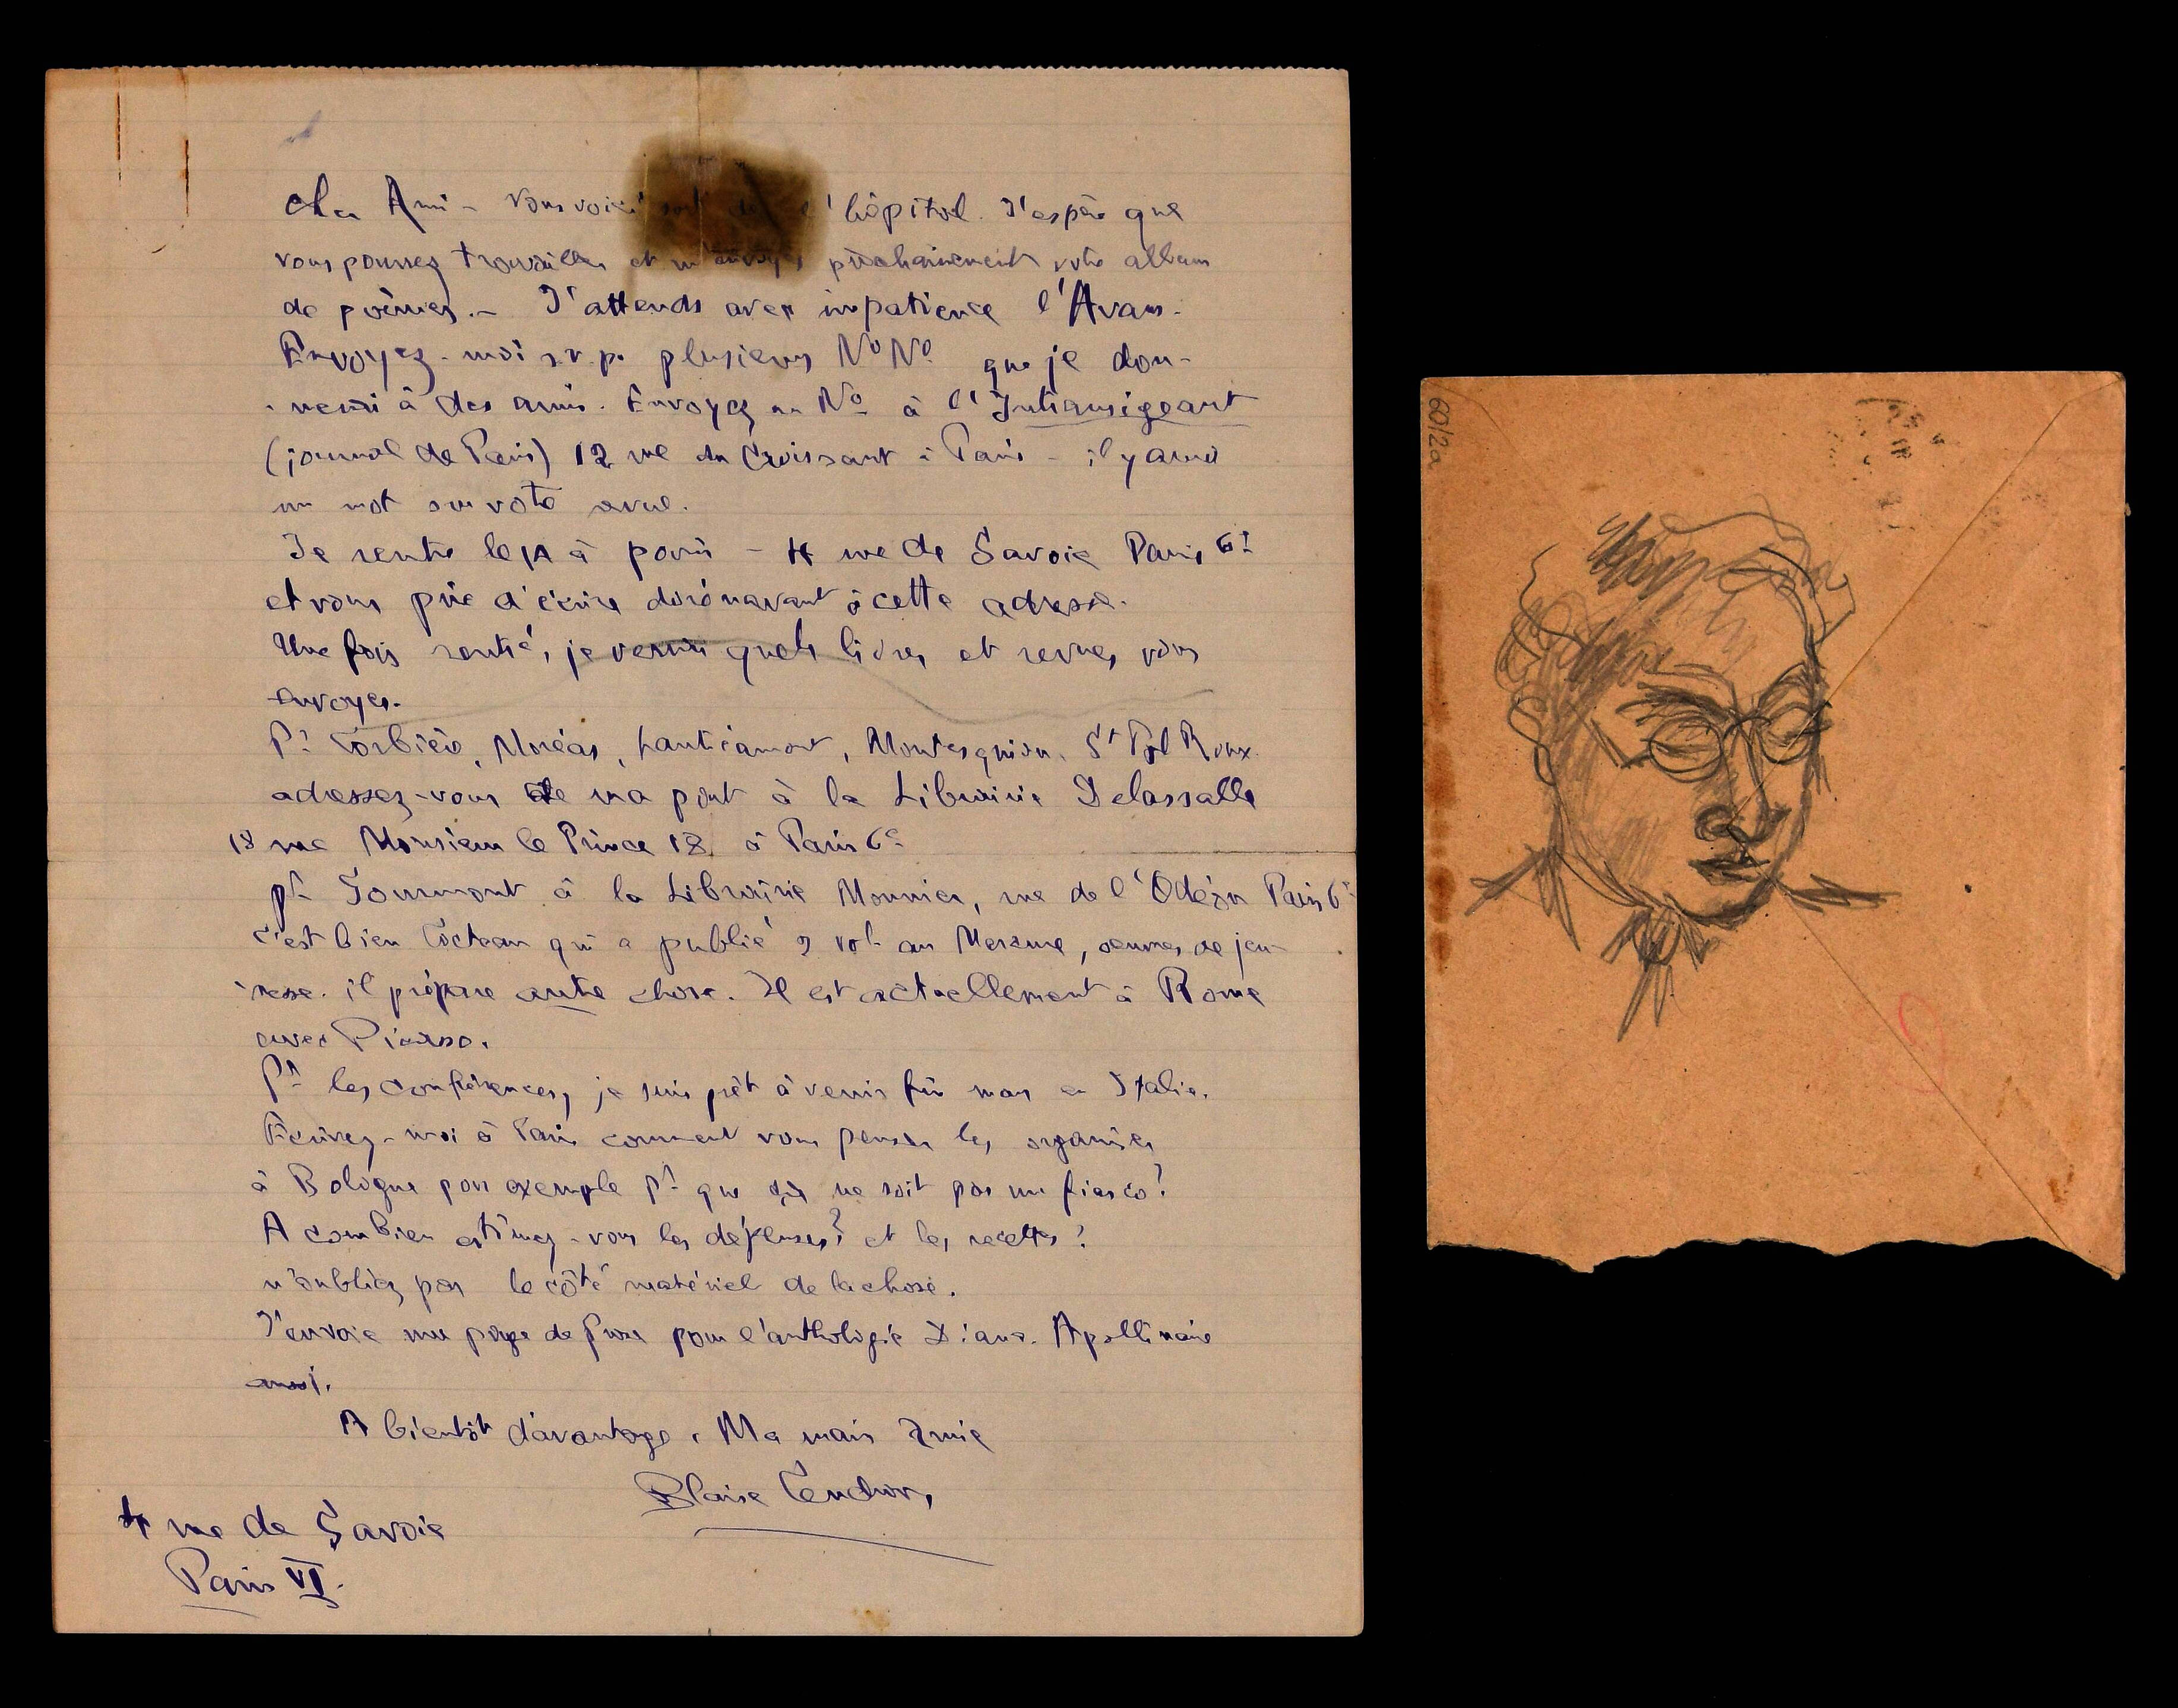 Cher Ami – Vous voici sorti de l'hôpital. J'espère que
vous pourrez travailler et m'envoyer prochainement votre album
de poèmes. – J'attends avec impatience l'Avans.
Envoyez-moi s.v.p. plusieurs Nº Nº que je don-
-nerai à des amis. Envoyez un Nº à l'Intransigeant
(journal de Paris) 12 rue du Croissant à Paris – il y aura
un mot sur votre revue.
Je rentre le à paris – 4 rue de Savoie Paris 6e
et vous prie d'écrire dorénavant à cette adresse.
Une fois rentré, je verrai quels livres et revues vous
envoyer.
Pr Corbière, Moréas, Lautréamont, Montesquiou, St Pol Roux
adressez-vous de ma part à la Librairie Delassalle
18 rue Monsieur le Prince 18 à Paris 6e
pr Gourmont à la Librairie Monnier, rue de l'Odéon Paris 6e
c'est bien Cocteau qui a publié 2 vol. au Mercure, œuvres de jeu-
-nesse. il prépare autre chose. Il est actuellement à Rome
avec Picasso.
Pr les conférences, je suis prêt à venir fin mars en Italie.
Écrivez-moi à Paris comment vous pensez les organiser
à Bologne par exemple pr que ça ne soit pas un fiasco?
A combien estimez-vous les dépenses? et les recettes?
n'oubliez pas le côté matériel de la chose.
J'envoie une page de Prose pour l'anthologie Diana. Apollinaire
aussi.
A bientôt davantage. Ma main amie
Blaise Cendrars
4 rue de Savoie
Paris VI.
60/2a